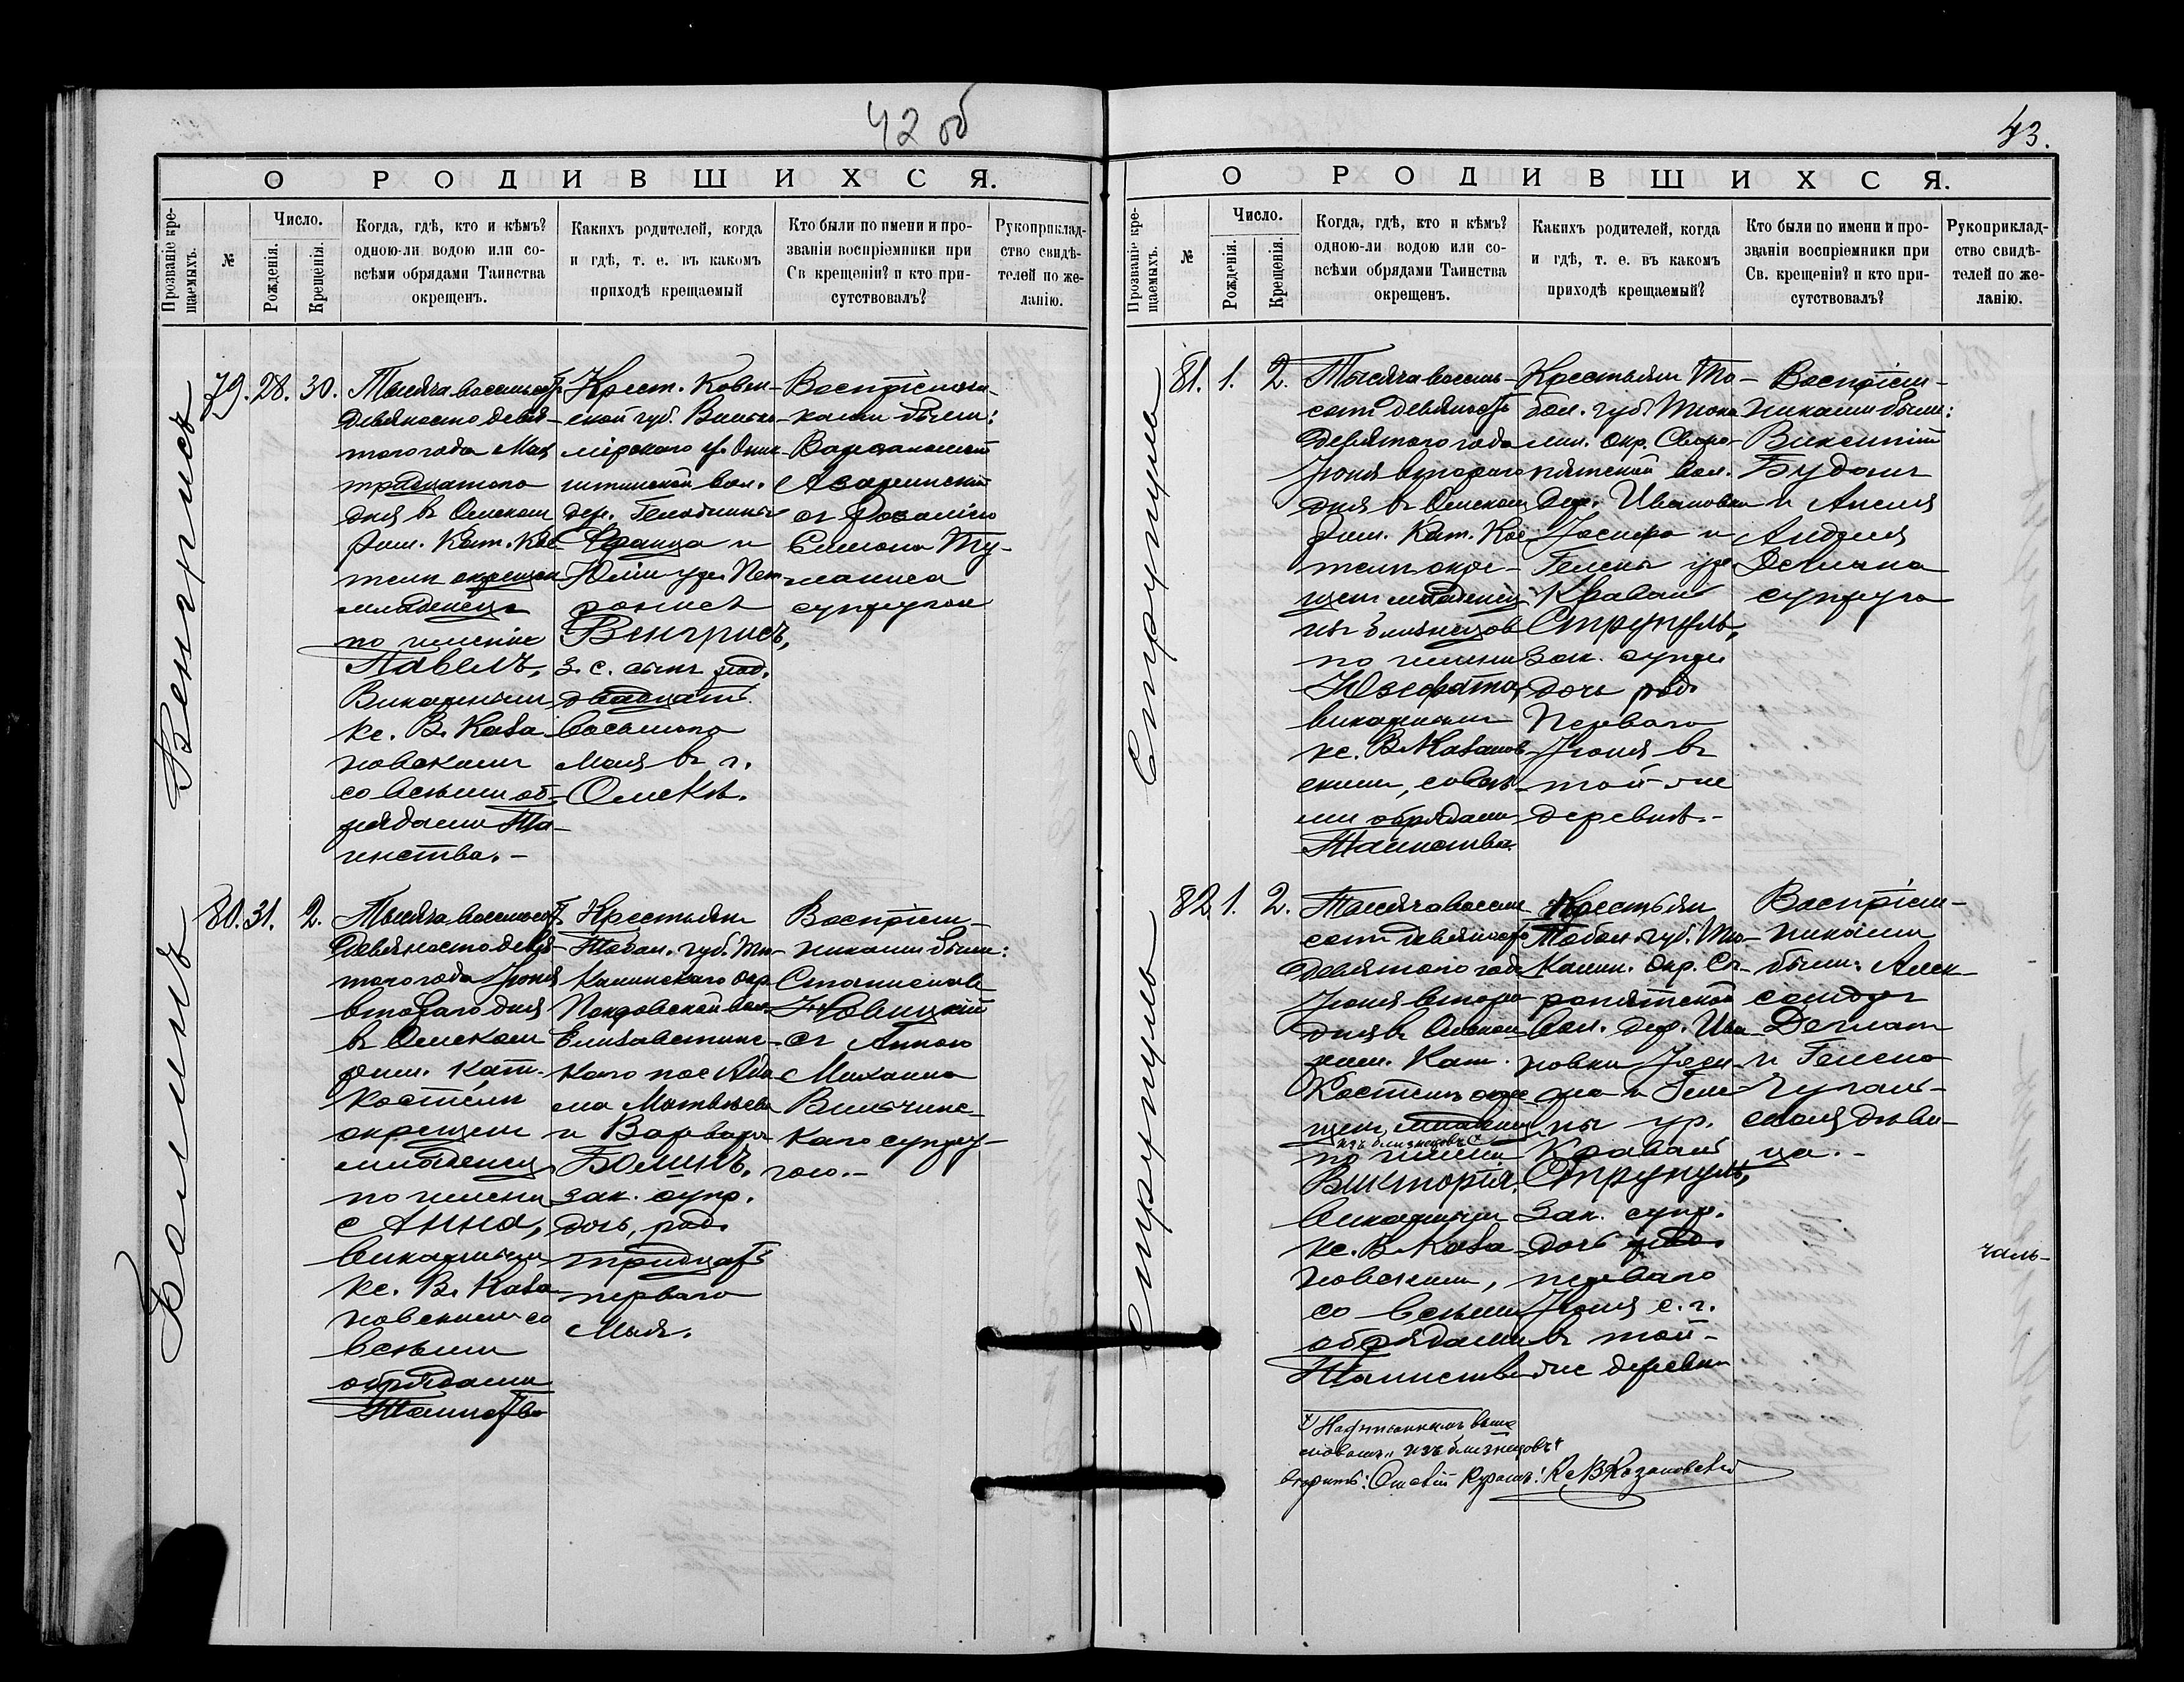 42 об
О РОДИВШИХСЯ.
Прозваніе кре-
щаемыхъ.
№
Число.
Рожденія.
Крещенія.
Когда, гдѣ, кто и кѣмъ?
одною-ли водою или со-
всѣми обрядами Таинства
окрещенъ.
Какихъ родителей, когда
и гдѣ, т. е. въ какомъ
приходѣ крещаемый
Кто были по имени и про-
званіи воспріемники при
Св крещеніи? и кто при-
сутствовалъ?
Рукоприклад-
ство свидѣ-
телей по же-
ланію.
Венгрисъ
79. 28. 30.
Тысяча восемьсотъ
девяносто девя-
таго года Мая
тридцатаго
дня въ Омскомъ
Рим. Кат. Кос
телѣ окрещенъ
младенецъ
по имени
Павелъ,
Викарнымъ
кс. В. Каза-
новскимъ
со всѣми об-
рядами Та-
инства.-
Крест. Ковен-
ской губ. Вилько-
мірскаго у.
вол.
дер.
Франца и
Юліи ур. Пет-
ронисъ
Венгрисъ,
з. с. сынъ род.
двадцать
восьмого
Мая въ г.
Омскѣ.
Воспріемни-
ками были:
съ Розаліею
Симона
супругою
Болинъ
80. 31. 2.
Тысяча восемьсотъ
девяносто девя-
таго года Іюня
второго дня
въ Омскомъ
рим. кат.
костёлѣ
окрещенъ
младенецъ
по имени
Анна,
Викарнымъ
кс. В. Каза-
новскимъ со
всѣми
обрядами
Таинства
Крестьянъ
Тобол. губ. Тю-
калинскаго окр.
Покровской вол.
Елизаветинс-
каго пос. Ада-
ма Матвѣева
и Варвары
Болинъ,
зак. супр.
дочь, род.
тридцать
перваго
Мая.
Воспріем-
никами были:
Станиславъ
съ Анною
Михаила
Вильчинс-
каго супру-
гою.-
43.
О РОДИВШИХСЯ.
Прозваніе кре-
щаемыхъ.
№
Число.
Рожденія.
Крещенія.
Когда, гдѣ, кто и кѣмъ?
одною-ли водою или со-
всѣми обрядами Таинства
окрещенъ.
Какихъ родителей, когда
и гдѣ, т. е. въ какомъ
приходѣ крещаемый?
Кто были по имени и про-
званіи воспріемники при
Св. крещеніи? и кто при-
сутствовалъ?
Рукоприклад-
ство свидѣ-
телей по же-
ланію.
Струпуль
81. 1. 2.
Тысяча восемь-
сотъ девяносто
девятаго года
Іюня второго
дня въ Омскомъ
Рим. Кат. Кос-
телѣ окре-
щенъ младенецъ
изъ близнецовъ
по имени
Юзефата,
викарнымъ
кс. В. Казанов-
скимъ, со всѣ-
ми обрядами
Таинства.
Крестьянъ То-
бол. губ. Тюка-
лин. окр. Сыро-
пятской вол.
дер. Ивановки
Іосифа и
Гелены ур.
Краваль
Струпуль,
зак. супр.
дочь род.
перваго
Іюня въ
той-же
деревнѣ.-
Воспріем-
никами были:
Викентій
Буданъ
и Анеля
Андрея
супруга
Струпуль
82 1. 2.
Тысяча восемь-
сотъ девяносто
девятаго года
Іюня второго
дня въ Омскомъ
рим. Кат.
Костелѣ окре-
щенъ младенецъ
изъ близнецовъ х
по имени
Викторія,
викарнымъ
кс. В. Каза-
новскимъ,
со всѣми
обрядами
Таинства
Крестьянъ
Тобол. губ. Тю-
калин. окр. Сы-
ропятской
вол. дер. Ива-
новки Іоси-
фа и Геле-
ны ур.
Краваль
Струпуль,
зак. супр.
дочь род.
перваго
Іюня с. г.
въ той-
же деревни
Воспріем-
никами
были: Алек-
сандръ
и Гелена
ская дѣви-
ца.-
чаль-
х) Надписаннымъ выше
словамъ „изъ близнецовъ"
вѣрить: Омскій Куратъ: Кс В Казановскій